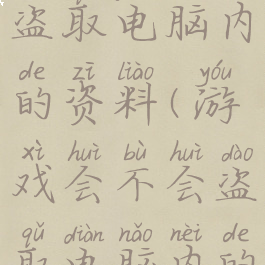 盗取电脑内
de zī liào yóu
的资料(游
xì huì bù huì dào
戏会不会盗
qǔ diàn nǎo nèi de
取电脑内的